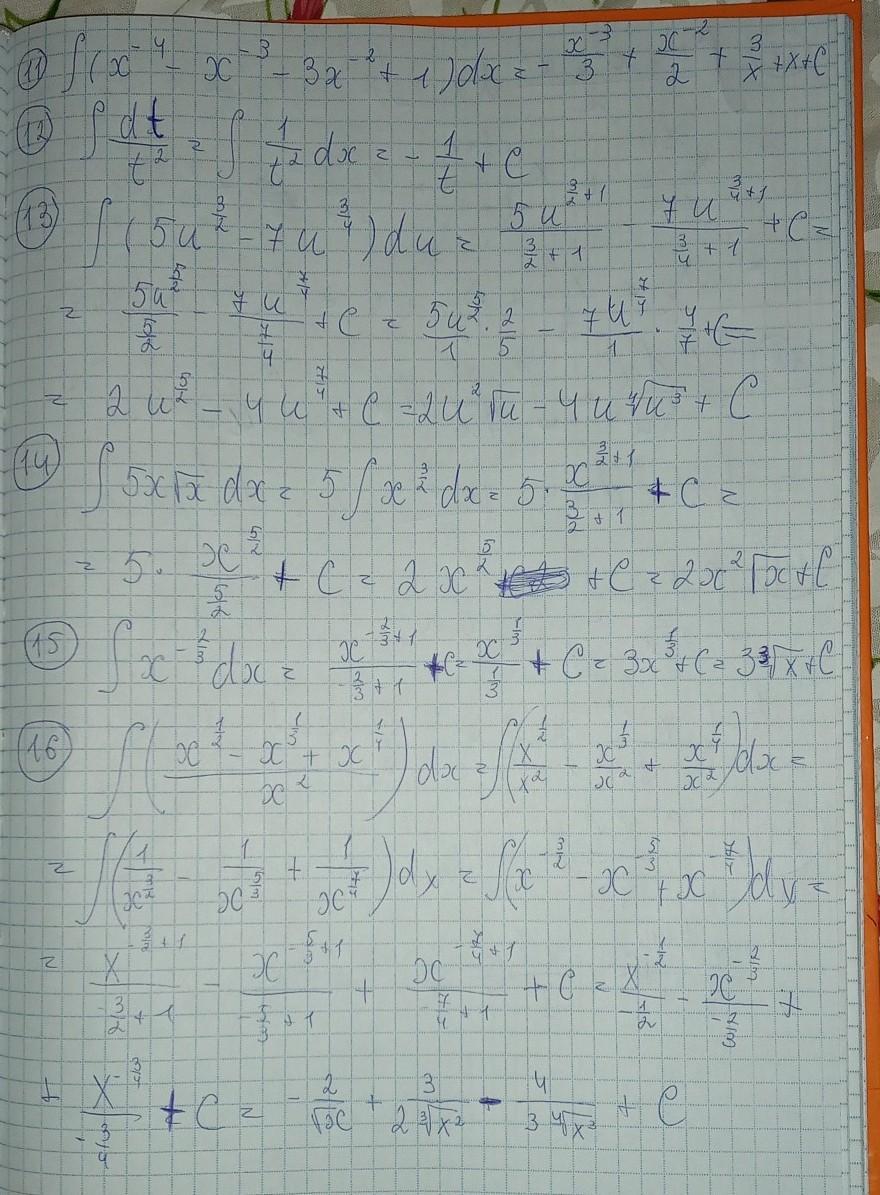 11 ∫(x^{-4} - x^{-3} - 3x^{-2} + 1)dx = -\frac{x^{-3}}{3} + \frac{x^{-2}}{2} + \frac{3}{x} + x + C
12 ∫\frac{dt}{t^2} = ∫\frac{1}{t^2}dx = -\frac{1}{t} + C
13 ∫(5u^{\frac{3}{2}} - 7u^{\frac{3}{4}})du = \frac{5u^{\frac{3}{2}+1}}{\frac{3}{2}+1} - \frac{7u^{\frac{3}{4}+1}}{\frac{3}{4}+1} + C =
= \frac{5u^{\frac{5}{2}}}{\frac{5}{2}} - \frac{7u^{\frac{7}{4}}}{\frac{7}{4}} + C = \frac{5u^{\frac{5}{2}}}{1} · \frac{2}{5} - \frac{7u^{\frac{7}{4}}}{1} · \frac{4}{7} + C =
= 2u^{\frac{5}{2}} - 4u^{\frac{7}{4}} + C = 2u^2\sqrt{u} - 4u\sqrt[4]{u^3} + C
14 ∫5x\sqrt{x} dx = 5∫x^{\frac{3}{2}}dx = 5·\frac{x^{\frac{3}{2}+1}}{\frac{3}{2}+1} + C =
= 5·\frac{x^{\frac{5}{2}}}{\frac{5}{2}} + C = 2x^{\frac{5}{2}} + C = 2x^2\sqrt{x} + C
15 ∫x^{-\frac{2}{3}}dx = \frac{x^{-\frac{2}{3}+1}}{-\frac{2}{3}+1} + C = \frac{x^{\frac{1}{3}}}{\frac{1}{3}} + C = 3x^{\frac{1}{3}} + C = 3\sqrt[3]{x} + C
16 ∫(\frac{x^{\frac{1}{2}} - x^{\frac{1}{3}} + x^{\frac{1}{4}}}{x^2})dx = ∫(\frac{x^{\frac{1}{2}}}{x^2} - \frac{x^{\frac{1}{3}}}{x^2} + \frac{x^{\frac{1}{4}}}{x^2})dx =
= ∫(\frac{1}{x^{\frac{3}{2}}} - \frac{1}{x^{\frac{5}{3}}} + \frac{1}{x^{\frac{7}{4}}})dx = ∫(x^{-\frac{3}{2}} - x^{-\frac{5}{3}} + x^{-\frac{7}{4}})dx =
= \frac{x^{-\frac{3}{2}+1}}{-\frac{3}{2}+1} - \frac{x^{-\frac{5}{3}+1}}{-\frac{5}{3}+1} + \frac{x^{-\frac{7}{4}+1}}{-\frac{7}{4}+1} + C = \frac{x^{-\frac{1}{2}}}{-\frac{1}{2}} - \frac{x^{-\frac{2}{3}}}{-\frac{2}{3}} +
+ \frac{x^{-\frac{3}{4}}}{-\frac{3}{4}} + C = -\frac{2}{\sqrt{x}} + \frac{3}{2\sqrt[3]{x^2}} - \frac{4}{3\sqrt[4]{x^3}} + C